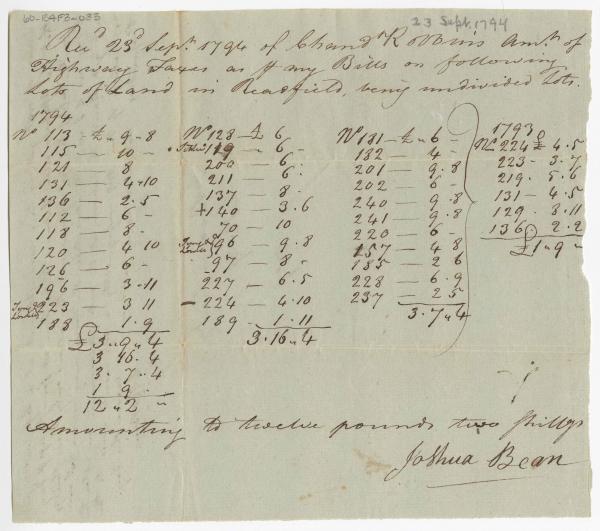 60-B4F3-033
23 Sept. 1794
Rec'd 23d Sept. 1794 of Chandr Robbins Amt. of
Highway Taxes as pr my Bills on following
Lots of Land in Readfield, being undivided Lots.
1794
No 113 - £ " 9 - 8
115 — 10 -
121 — 8
131 — 4 " 10
136 — 2 . 5
112 — 6 -
118 — 8 -
120 — 4 10
126 — 6 -
196 — 3 . 11
223 — 3 11
188 1 . 9
£3 " 9 " 4
3 16 . 4
3 . 7 . 4
1 9 .
12 " 2 "
No 128 - £ 6
119 — 6 -
200 — 6
211 — 6
137 — 8 -
+ 140 — 3 . 6
70 — 10
96 — 9 . 8
97 — 8 -
227 — 6 . 5
- 224 — 4 . 10
189 - 1 . 11
3 . 16 " 4
No 181 - £ 6 -
182 — 4 -
201 — 9 . 8
202 — 6 -
240 — 9 . 8
241 — 9 . 8
220 — 6 -
157 — 4 8
185 — 2 6
228 — 6 . 9
237 — 2 5
3 . 7 " 4
1793
No 224 £ 4 . 5
223 - 3 . 7
219 . 5 . 6
131 - 4 . 5
129 . 8 . 11
136 . 2 . 2
£1 " 9 "
Amounting to twelve pounds two shillgs
Joshua Bean